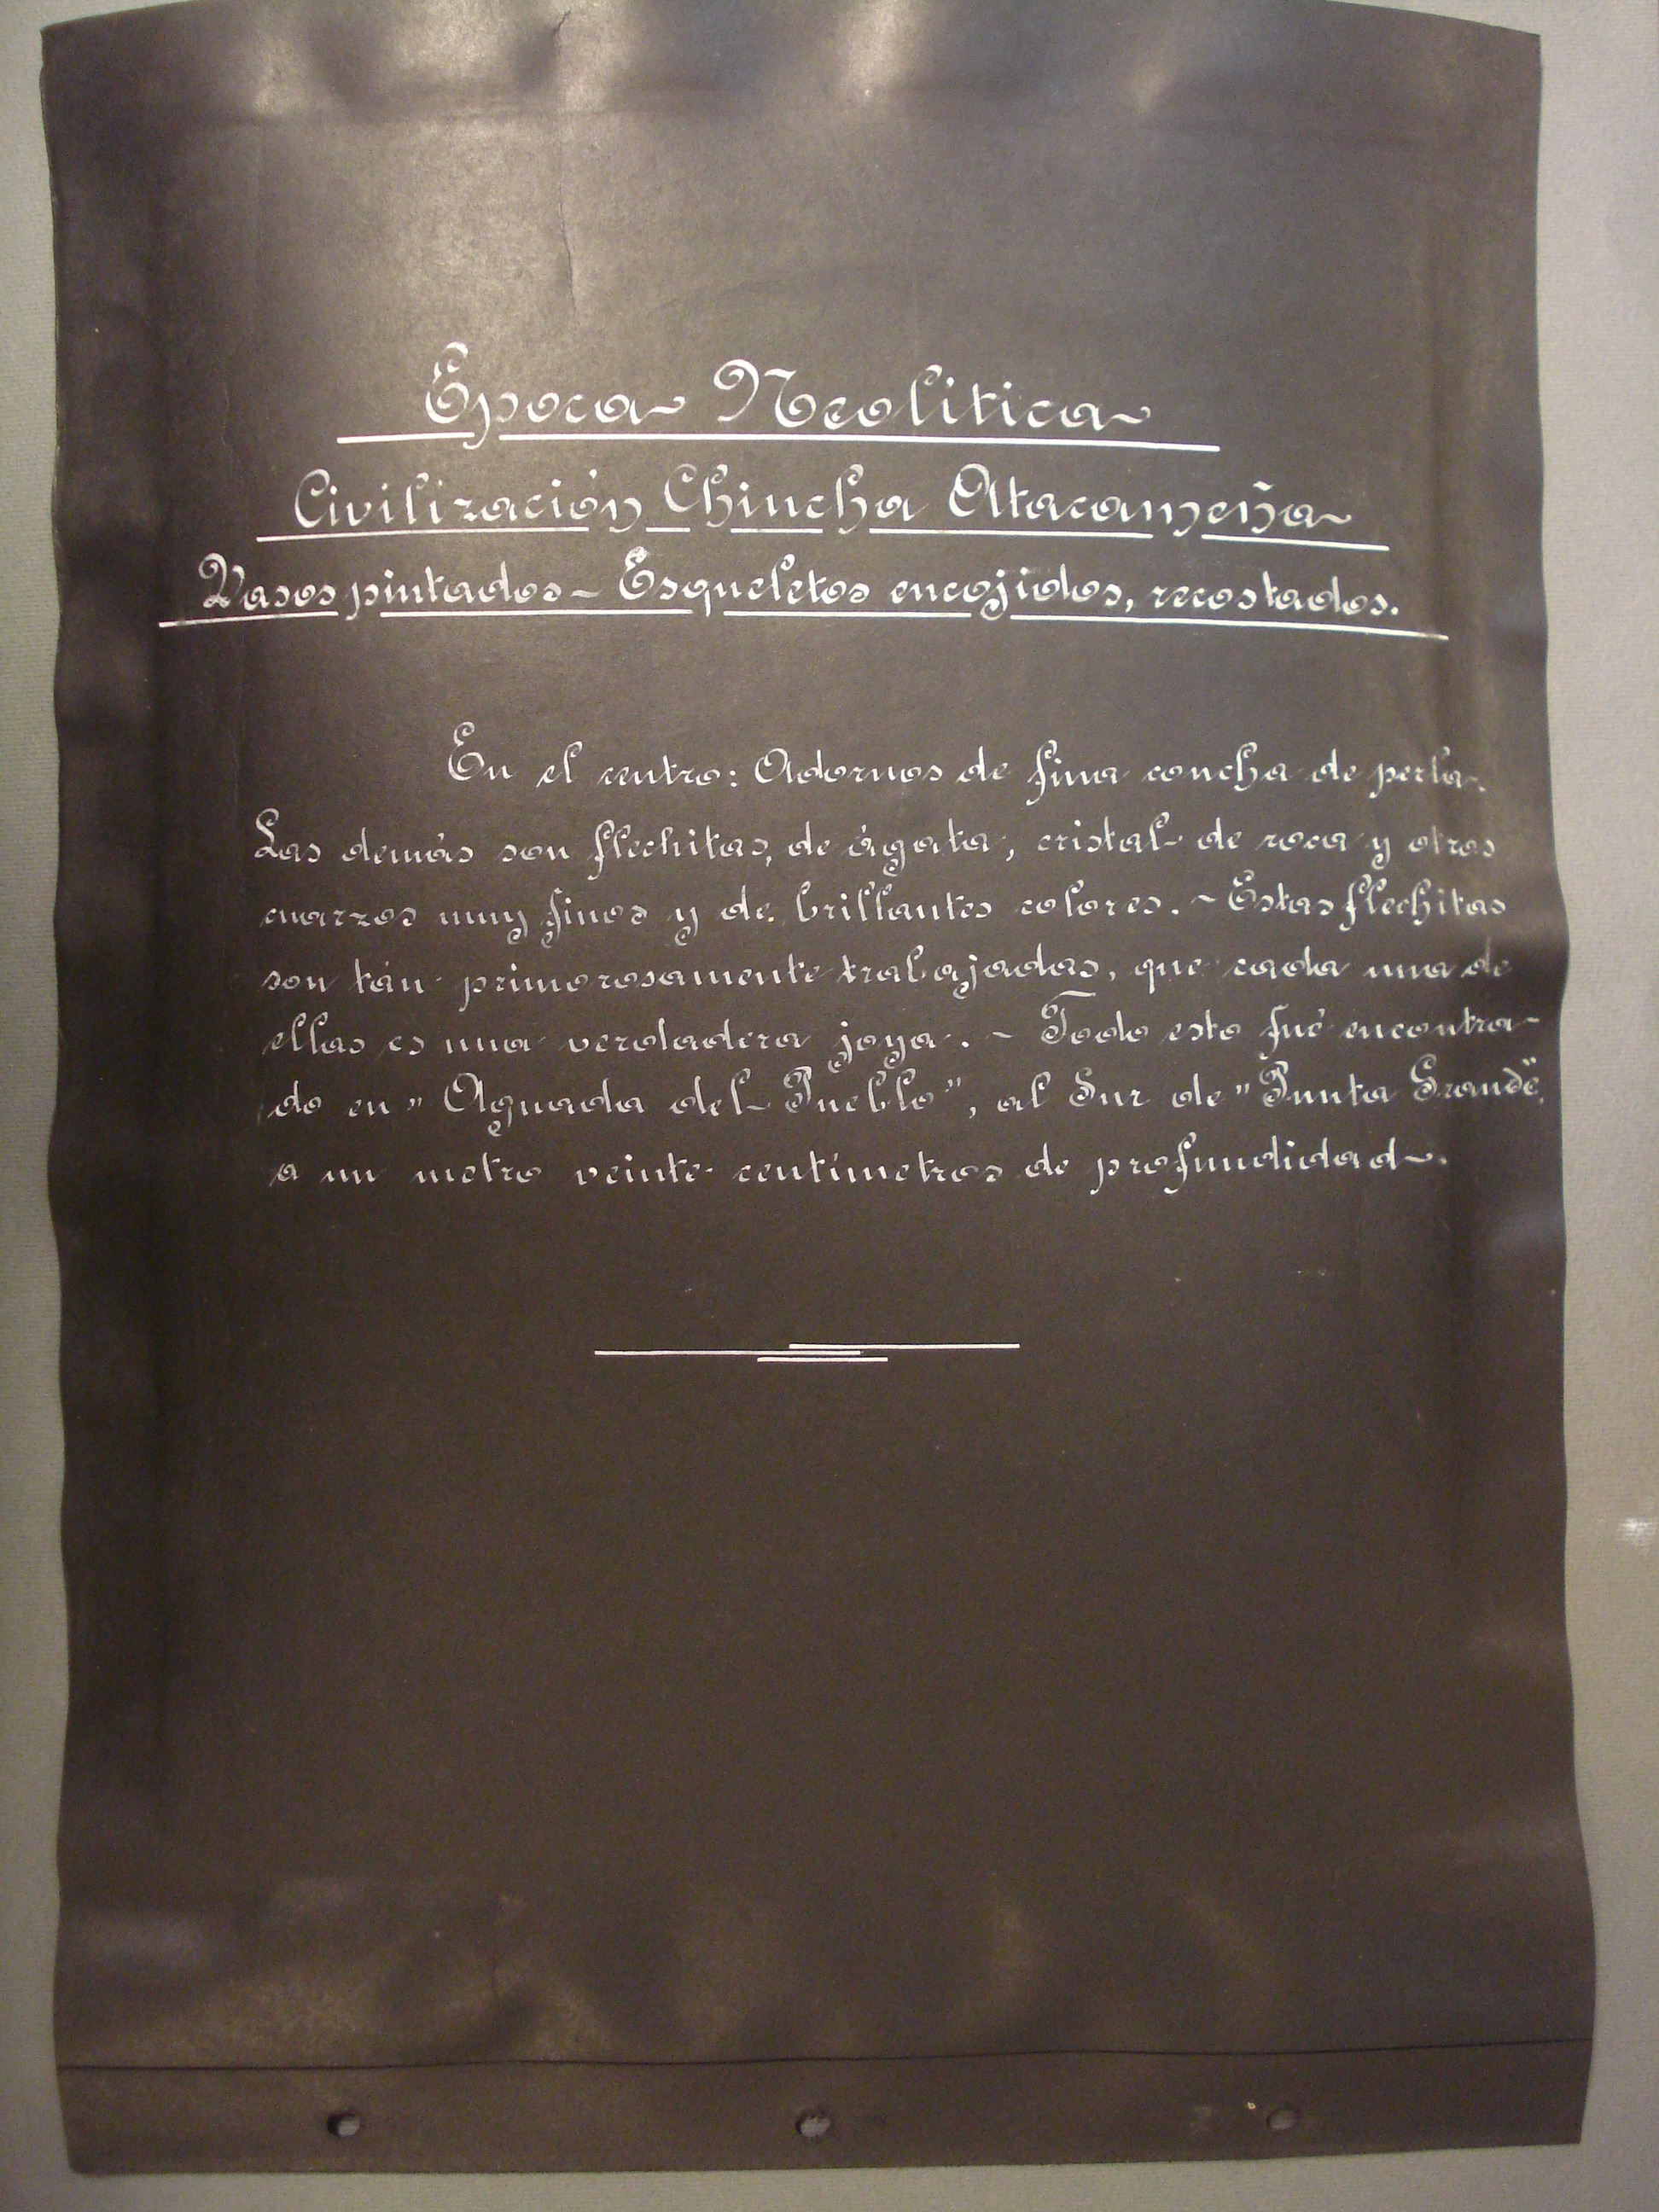 Epoca Neolitica
Civilización Chincha Atacameña
Vasos pintados - Esqueletos encojidos, recostados.
En el centro: Adornos de fina concha de perla.
Las demás son flechitas, de ágata, cristal de roca y otros
cuarzos muy finos y de brillantes colores. - Estas flechitas
son tán primorosamente trabajadas, que cada una de
ellas es una verdadera joya. - Todo esto fué encontra-
do en "Aguada del Pueblo", al Sur de "Punta Grande",
a un metro veinte centímetros de profundidad.